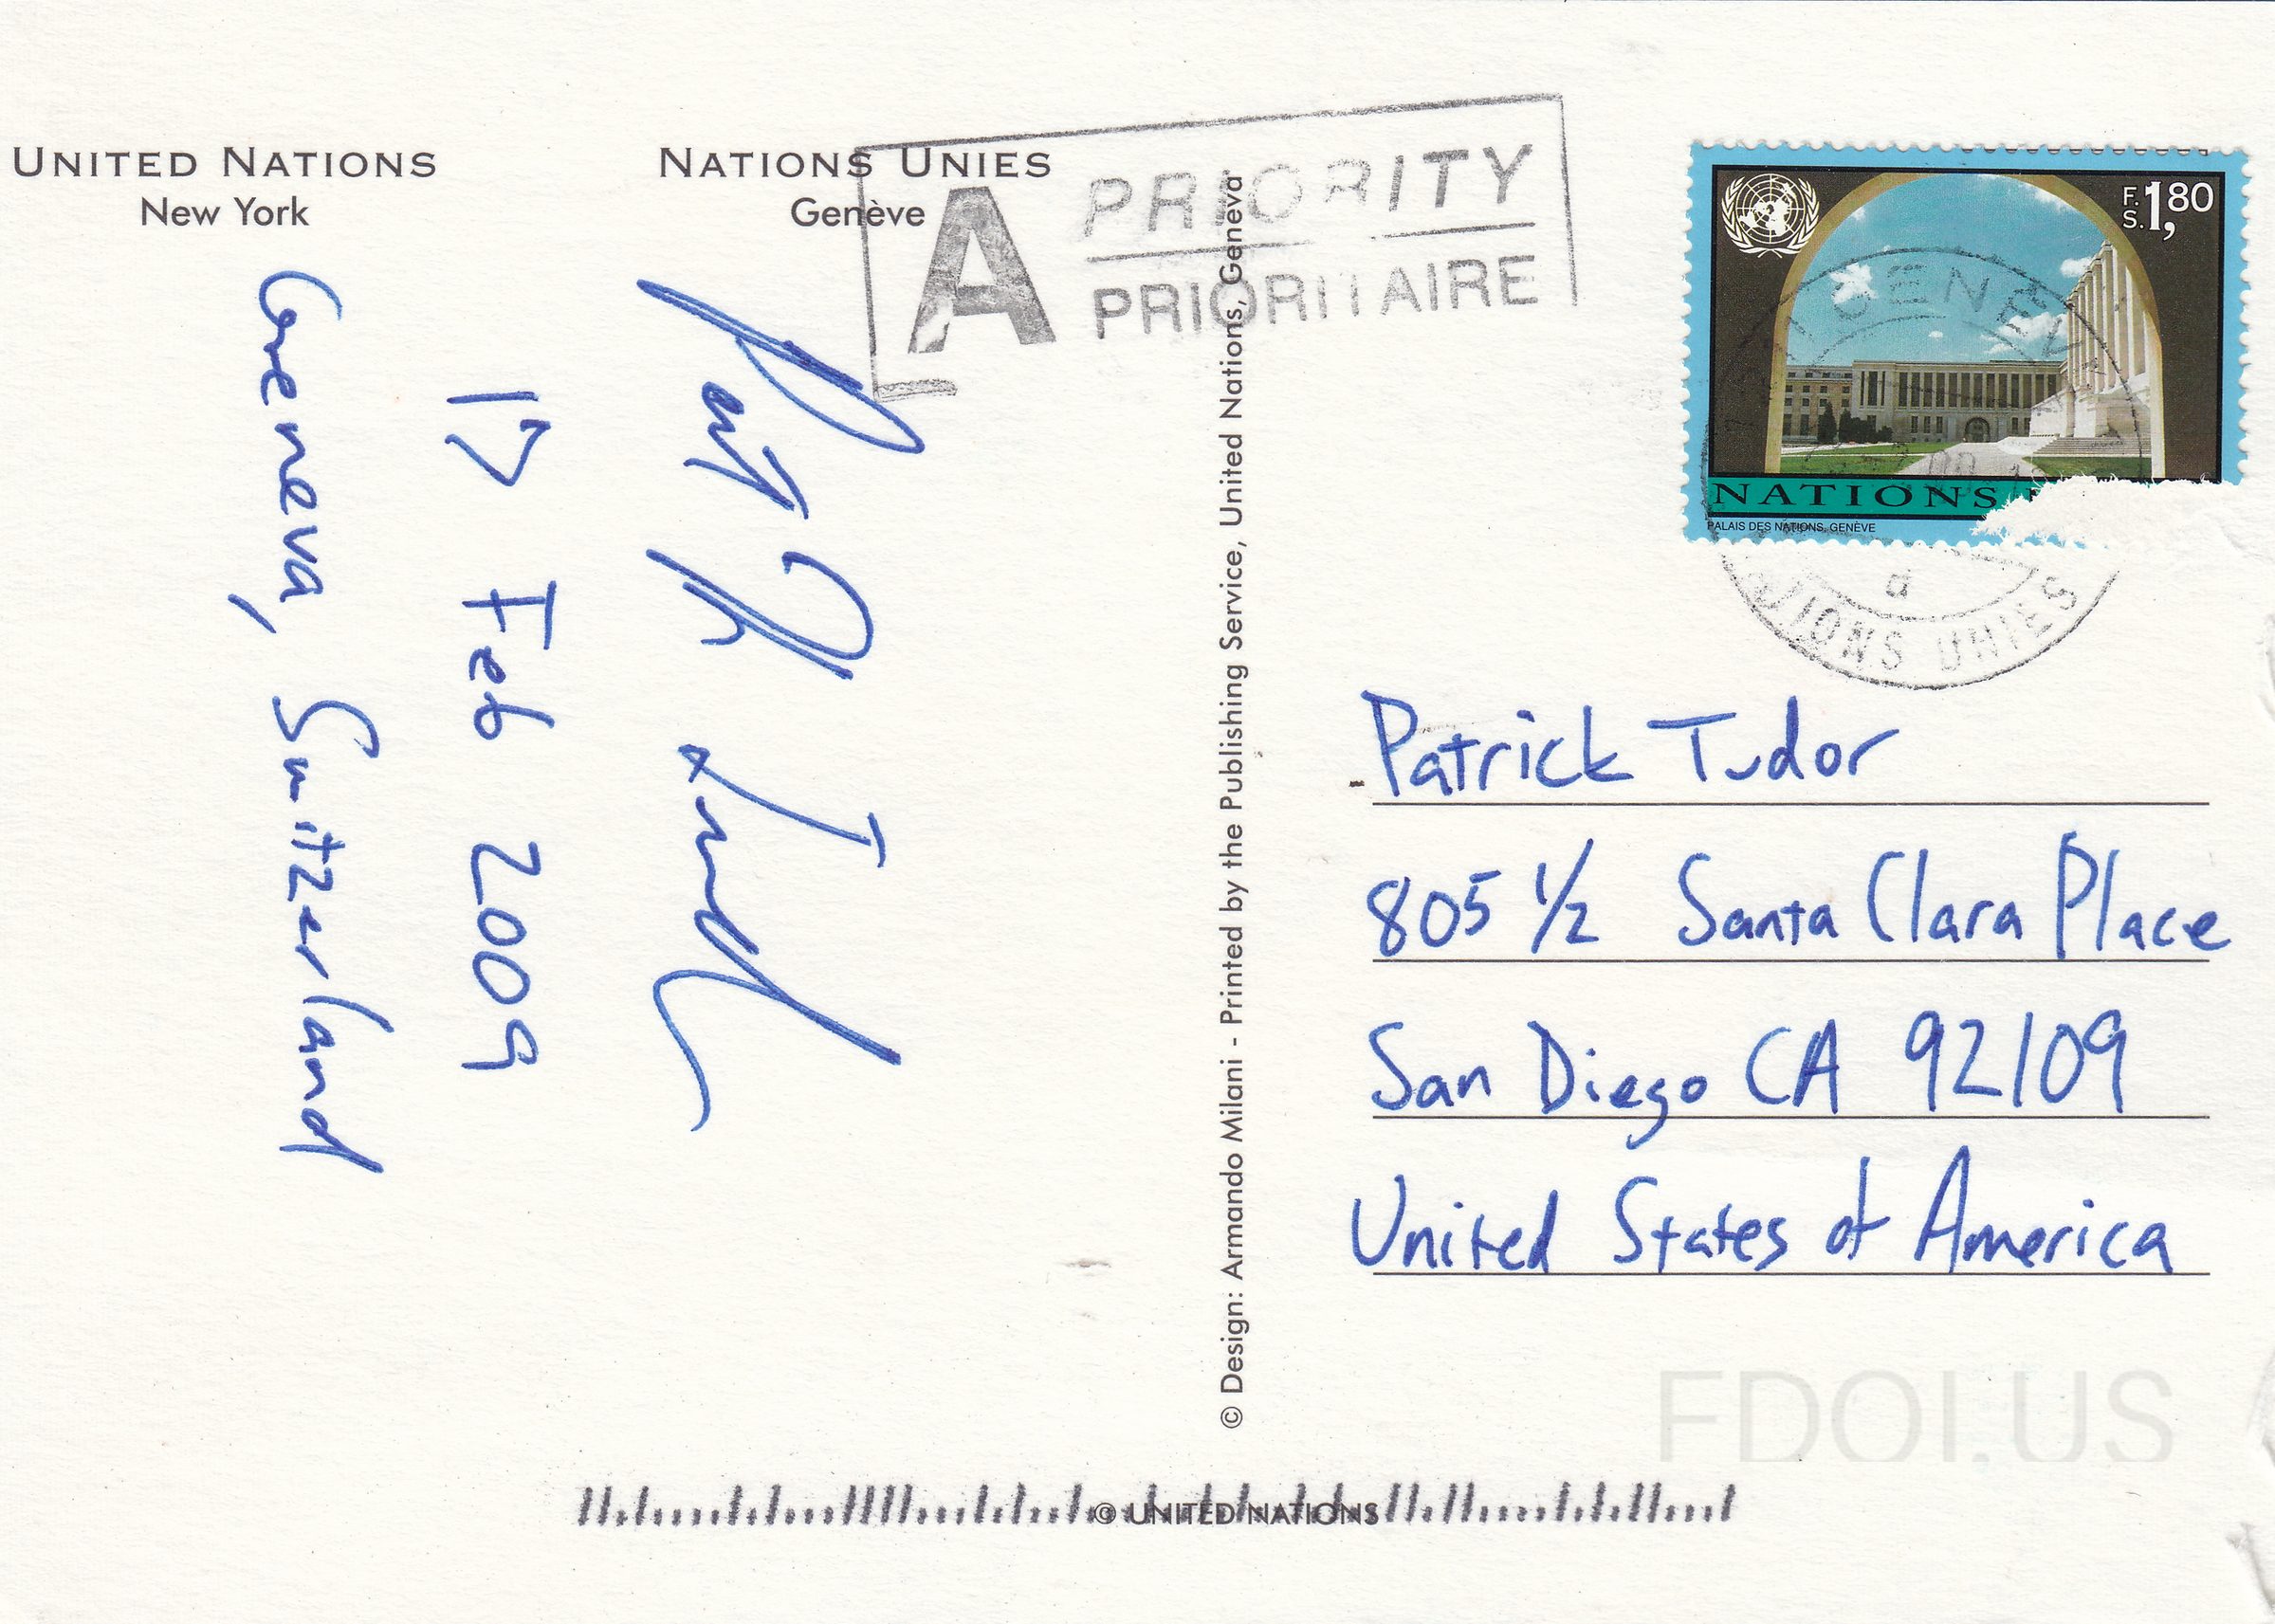 UNITED NATIONS
New York
NATIONS UNIES
Genève
A PRIORITY
PRIORITAIRE
F.S. 1,80
NATIONS
PALAIS DES NATIONS, GENÈVE
GENÈV
d
TIONS UNIES
17 Feb 2009
Geneva, Switzerland
© Design: Armando Milani - Printed by the Publishing Service, United Nations, Geneva
Patrick Tudor
805 1/2 Santa Clara Place
San Diego CA 92109
United States of America
FDOI.US
© UNITED NATIONS